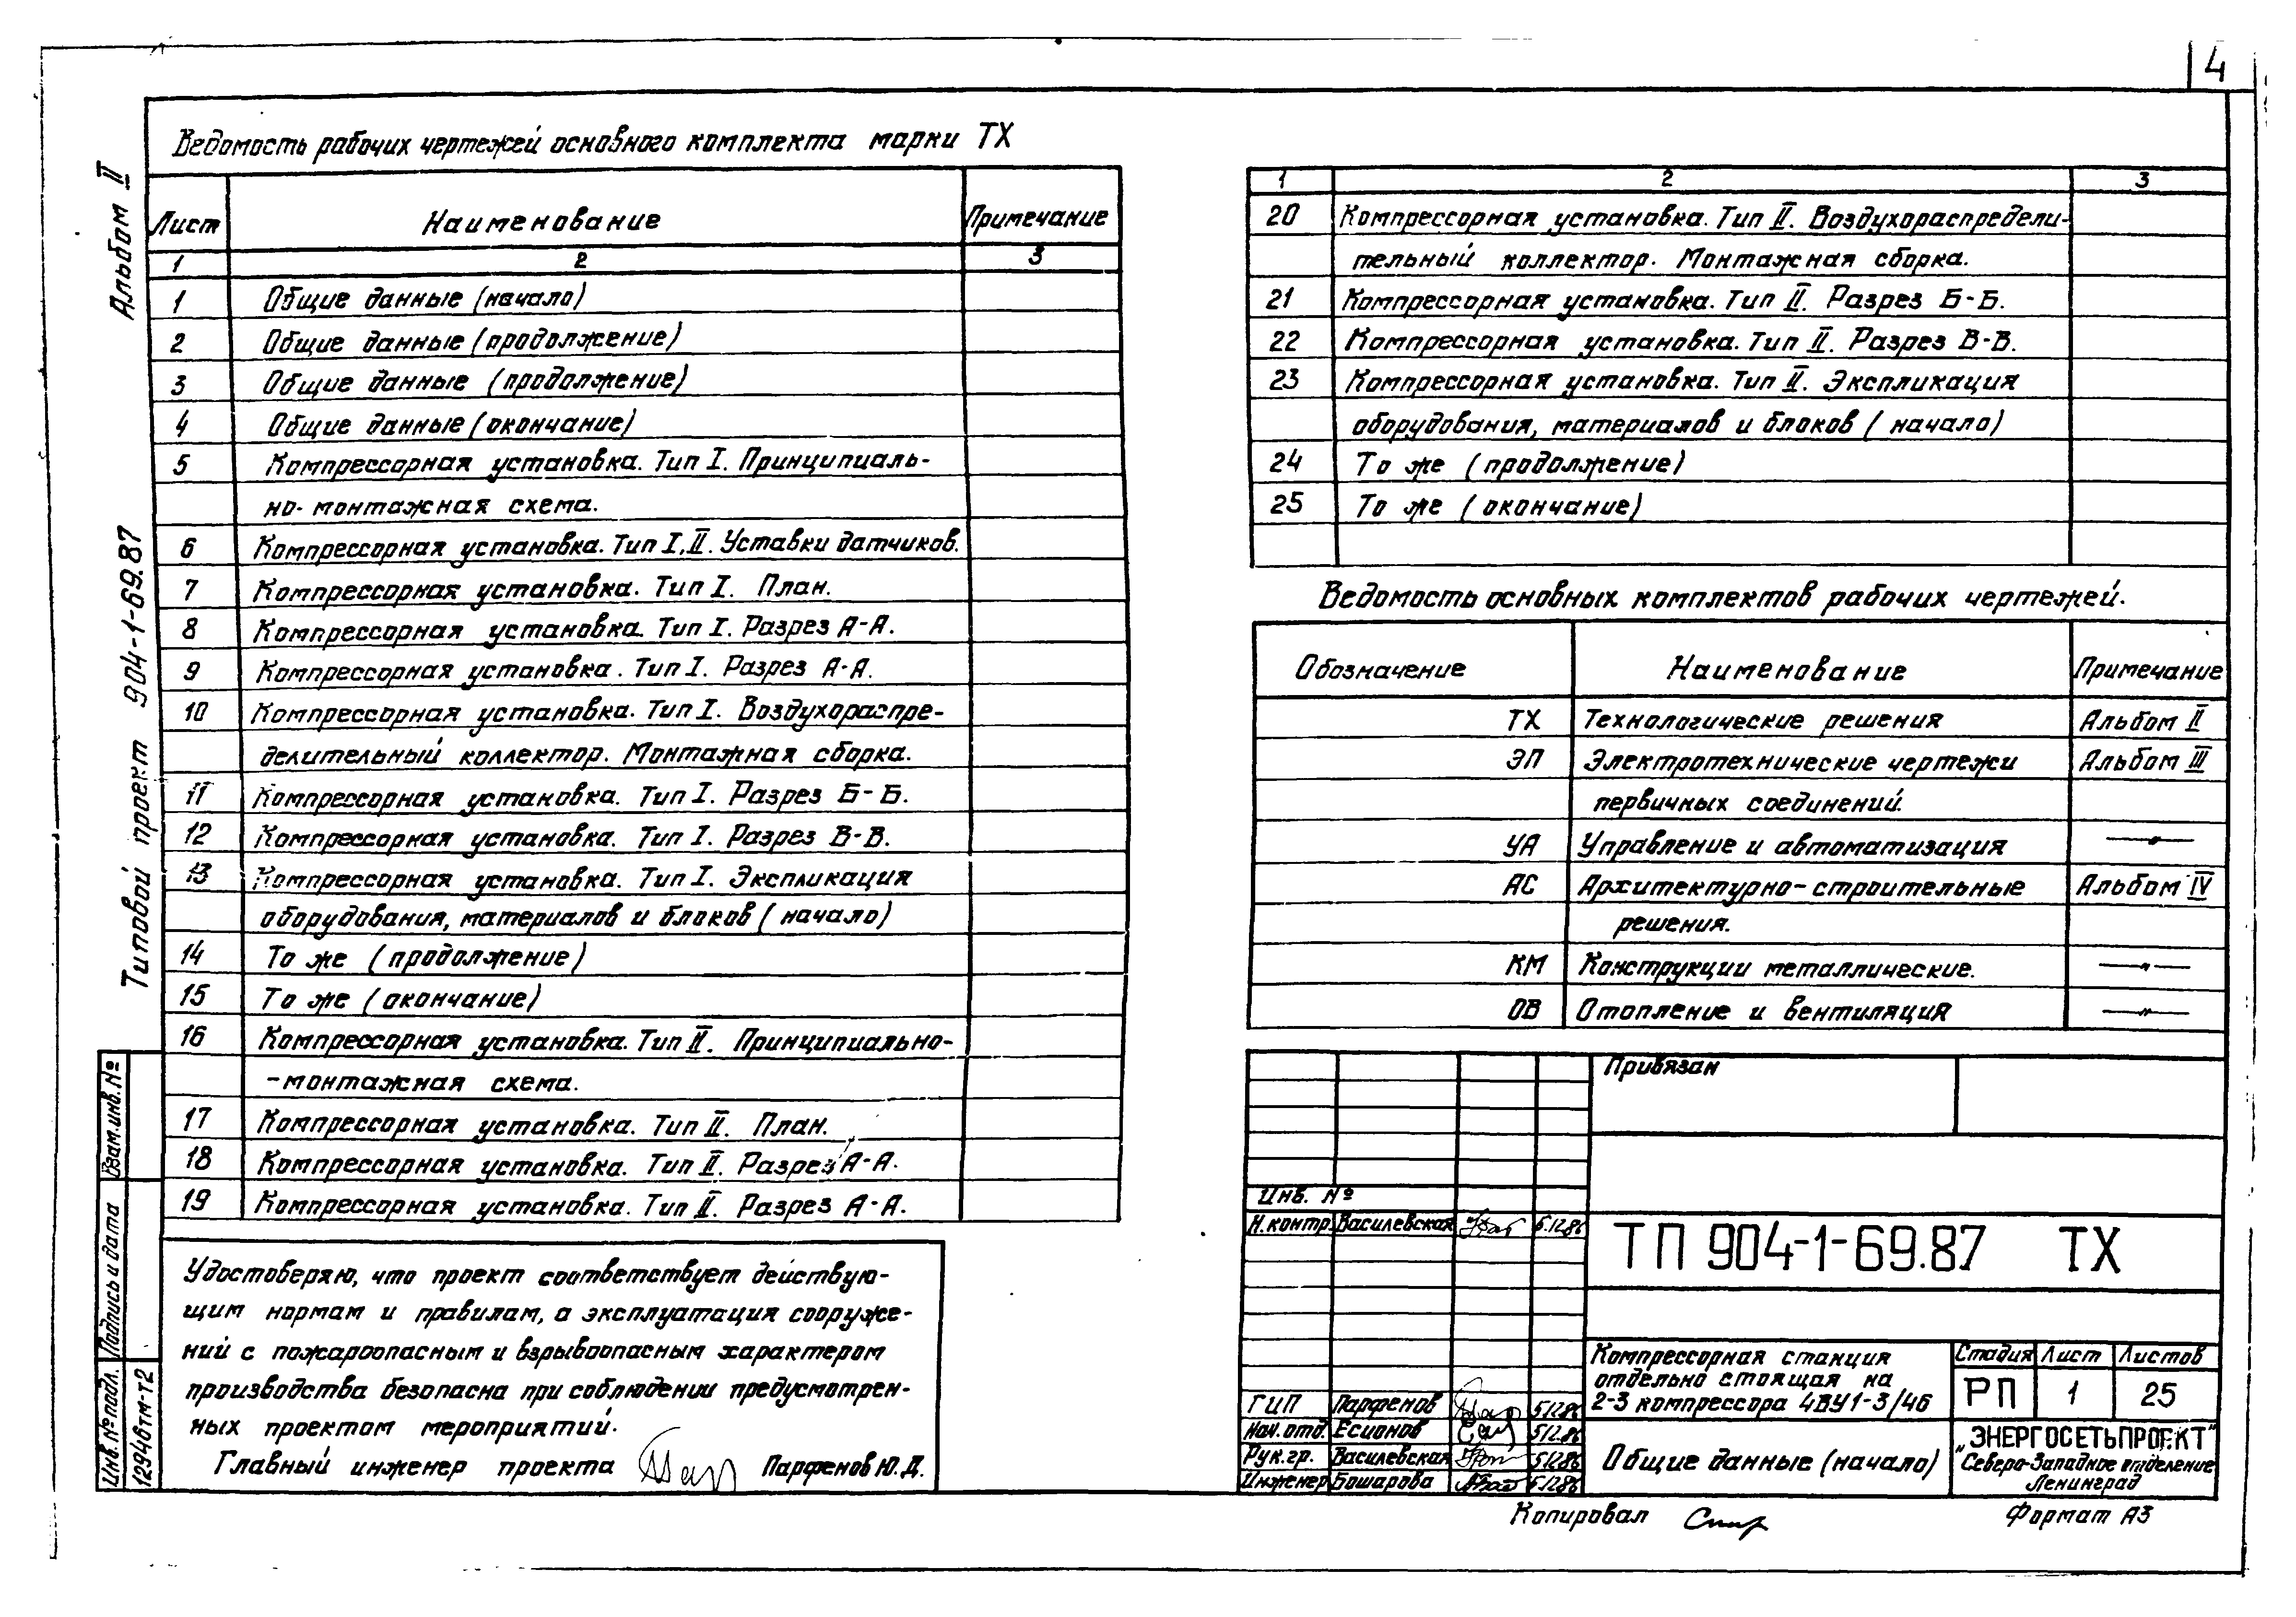 4
Альбом II
Типовой проект 904-1-69.87
Ведомость рабочих чертежей основного комплекта марки ТХ
Лист Наименование Примечание
1 2 3
1 Общие данные (начало)
2 Общие данные (продолжение)
3 Общие данные (продолжение)
4 Общие данные (окончание)
5 Компрессорная установка. Тип I. Принципиаль-
но-монтажная схема.
6 Компрессорная установка. Тип I, II. Уставки датчиков.
7 Компрессорная установка. Тип I. План.
8 Компрессорная установка. Тип I. Разрез А-А.
9 Компрессорная установка. Тип I. Разрез А-А.
10 Компрессорная установка. Тип I. Воздухораспре-
делительный коллектор. Монтажная сборка.
11 Компрессорная установка. Тип I. Разрез Б-Б.
12 Компрессорная установка. Тип I. Разрез В-В.
13 Компрессорная установка. Тип I. Экспликация
оборудования, материалов и блоков (начало)
14 То же (продолжение)
15 То же (окончание)
16 Компрессорная установка. Тип II. Принципиально-
-монтажная схема.
17 Компрессорная установка. Тип II. План.
18 Компрессорная установка. Тип II. Разрез А-А.
19 Компрессорная установка. Тип II. Разрез А-А.
Удостоверяю, что проект соответствует действую-
щим нормам и правилам, а эксплуатация сооруже-
ний с пожароопасным и взрывоопасным характером
производства безопасна при соблюдении предусмотрен-
ных проектом мероприятий.
Главный инженер проекта Парфенов Ю.Д.
Взам.инв.№
Подпись и дата
Инв.№подл.
12946тм-т2
1 2 3
20 Компрессорная установка. Тип II. Воздухораспредели-
тельный коллектор. Монтажная сборка.
21 Компрессорная установка. Тип II. Разрез Б-Б.
22 Компрессорная установка. Тип II. Разрез В-В.
23 Компрессорная установка. Тип II. Экспликация
оборудования, материалов и блоков (начало)
24 То же (продолжение)
25 То же (окончание)
Ведомость основных комплектов рабочих чертежей.
Обозначение Наименование Примечание
ТХ Технологические решения Альбом II
ЭП Электротехнические чертежи Альбом III
первичных соединений.
УА Управление и автоматизация —"—
АС Архитектурно-строительные Альбом IV
решения.
КМ Конструкции металлические. —"—
ОВ Отопление и вентиляция —"—
Привязан
Инв. №
Н.контр. Василевская 5.12.86
ТП 904-1-69.87 ТХ
Компрессорная станция
отдельно стоящая на
2-3 компрессора 4ВУ1-3/46
Стадия Лист Листов
РП 1 25
ГИП Парфенов 5.12.86
Нач.отд. Есионов 5.12.86
Рук.гр. Василевская 5.12.86
Инженер Бошарова 5.12.86
Общие данные (начало)
„ЭНЕРГОСЕТЬПРОЕКТ"
Северо-Западное отделение
Ленинград
Копировал
Формат А3